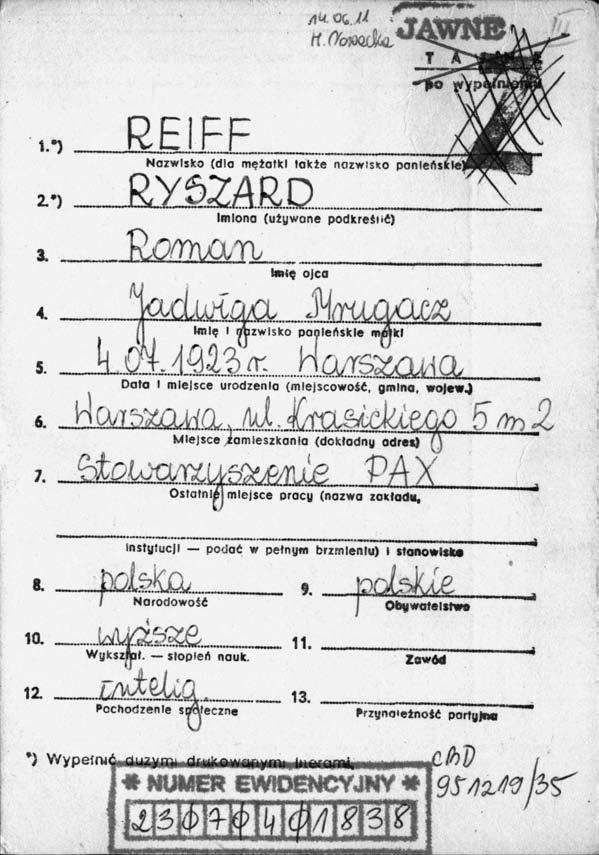 14.06.11
JAWNE
M. Nosecka
T A J N E
po wypełnieniu
1.*) REIFF
Nazwisko (dla mężatki także nazwisko panieńskie)
2.*) RYSZARD
Imiona (używane podkreślić)
3. Roman
Imię ojca
4. Jadwiga Mrugacz
Imię i nazwisko panieńskie matki
5. 4.07.1923 r. Warszawa
Data i miejsce urodzenia (miejscowość, gmina, wojew.)
6. Warszawa, ul. Krasickiego 5 m 2
Miejsce zamieszkania (dokładny adres)
7. Stowarzyszenie PAX
Ostatnie miejsce pracy (nazwa zakładu,
instytucji — podać w pełnym brzmieniu) i stanowisko
8. polska 9. polskie
Narodowość Obywatelstwo
10. wyższe 11.
Wykształ. — stopień nauk. Zawód
12. intelig. 13.
Pochodzenie społeczne Przynależność partyjna
*) Wypełnić dużymi drukowanymi literami.
CBD
951219/35
* NUMER EWIDENCYJNY *
23070401838